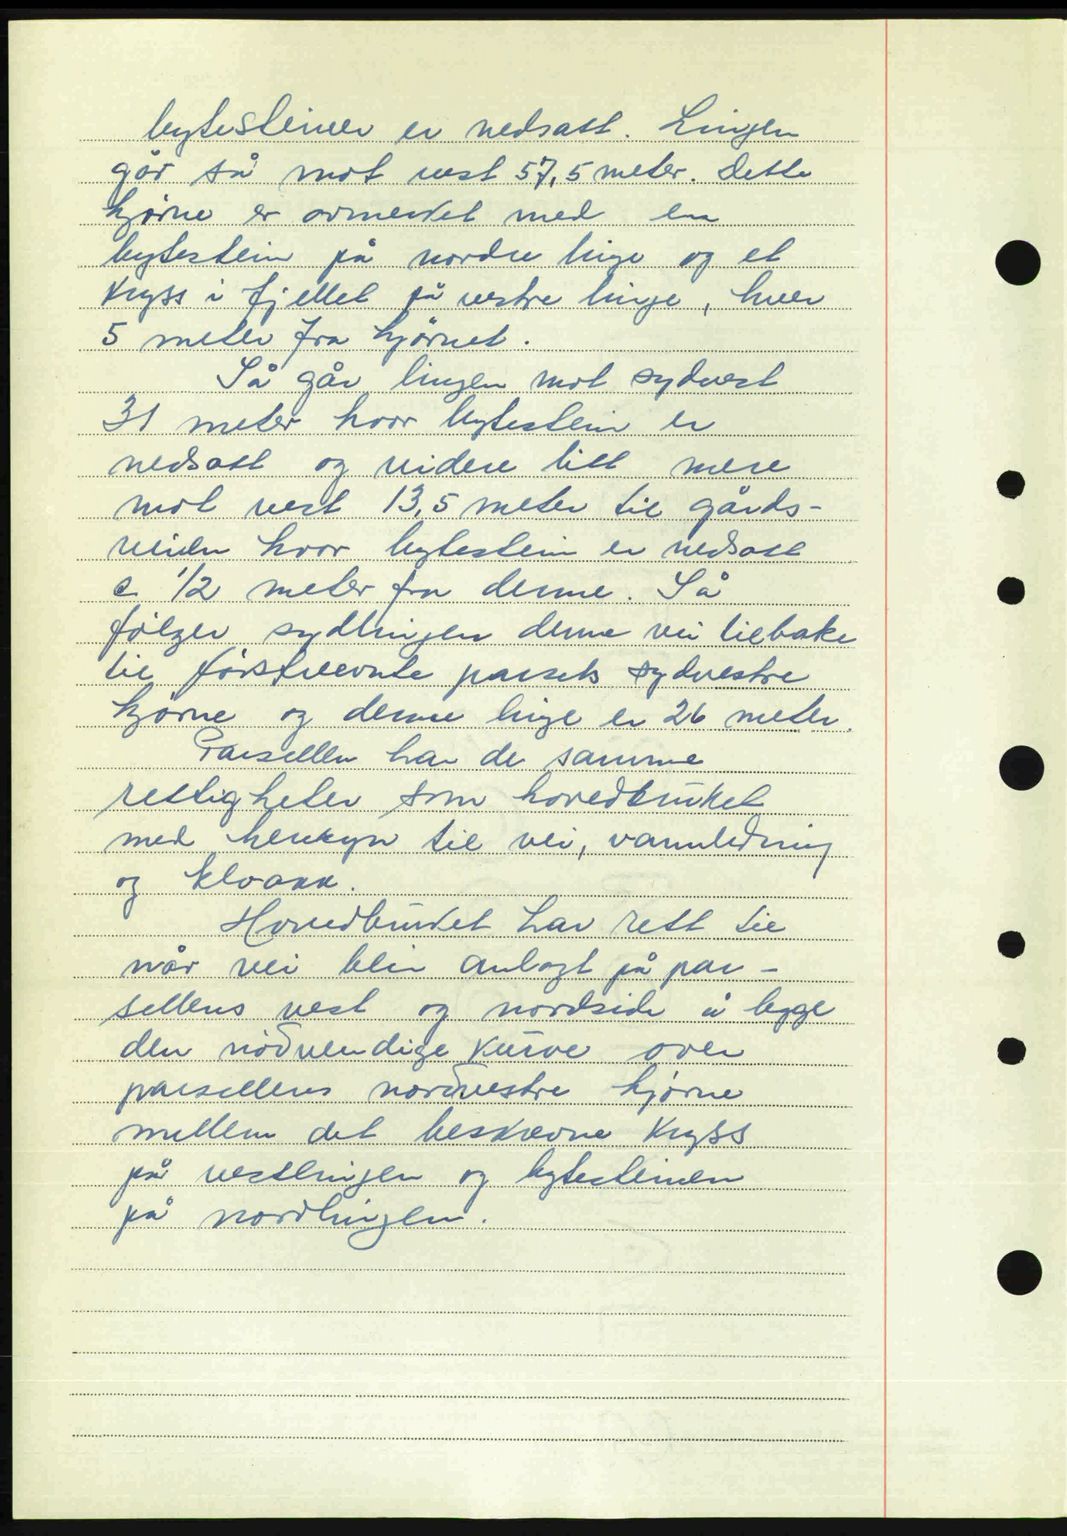 bytesteinen er nedsatt. Linjen
går så mot vest 57,5 meter. Dette
hjørne er avmerket med en
bytestein på nordre linje og et
kryss i fjellet på vestre linje, hver
5 meter fra hjørnet.
Så går linjen mot sydvest
31 meter hvor bytestein er
nedsatt og videre litt mere
mot vest 13,5 meter til gårds-
veien hvor bytestein er nedsatt
c. 1/2 meter fra denne. Så
følger sydlinjen denne vei tilbake
til førstnevnte parsels sydvestre
hjørne og denne linje er 26 meter.
Parsellen har de samme
rettigheter som hovedbruket
med hensyn til vei, vannledning
og kloakk.
Hovedbruket har rett til
når vei blir anlagt på par-
sellens vest og nordside å legge
den nødvendige kurve over
parsellens nordvestre hjørne
mellem det beskrevne kryss
på vestlinjen og bytesteinen
på nordlinjen.